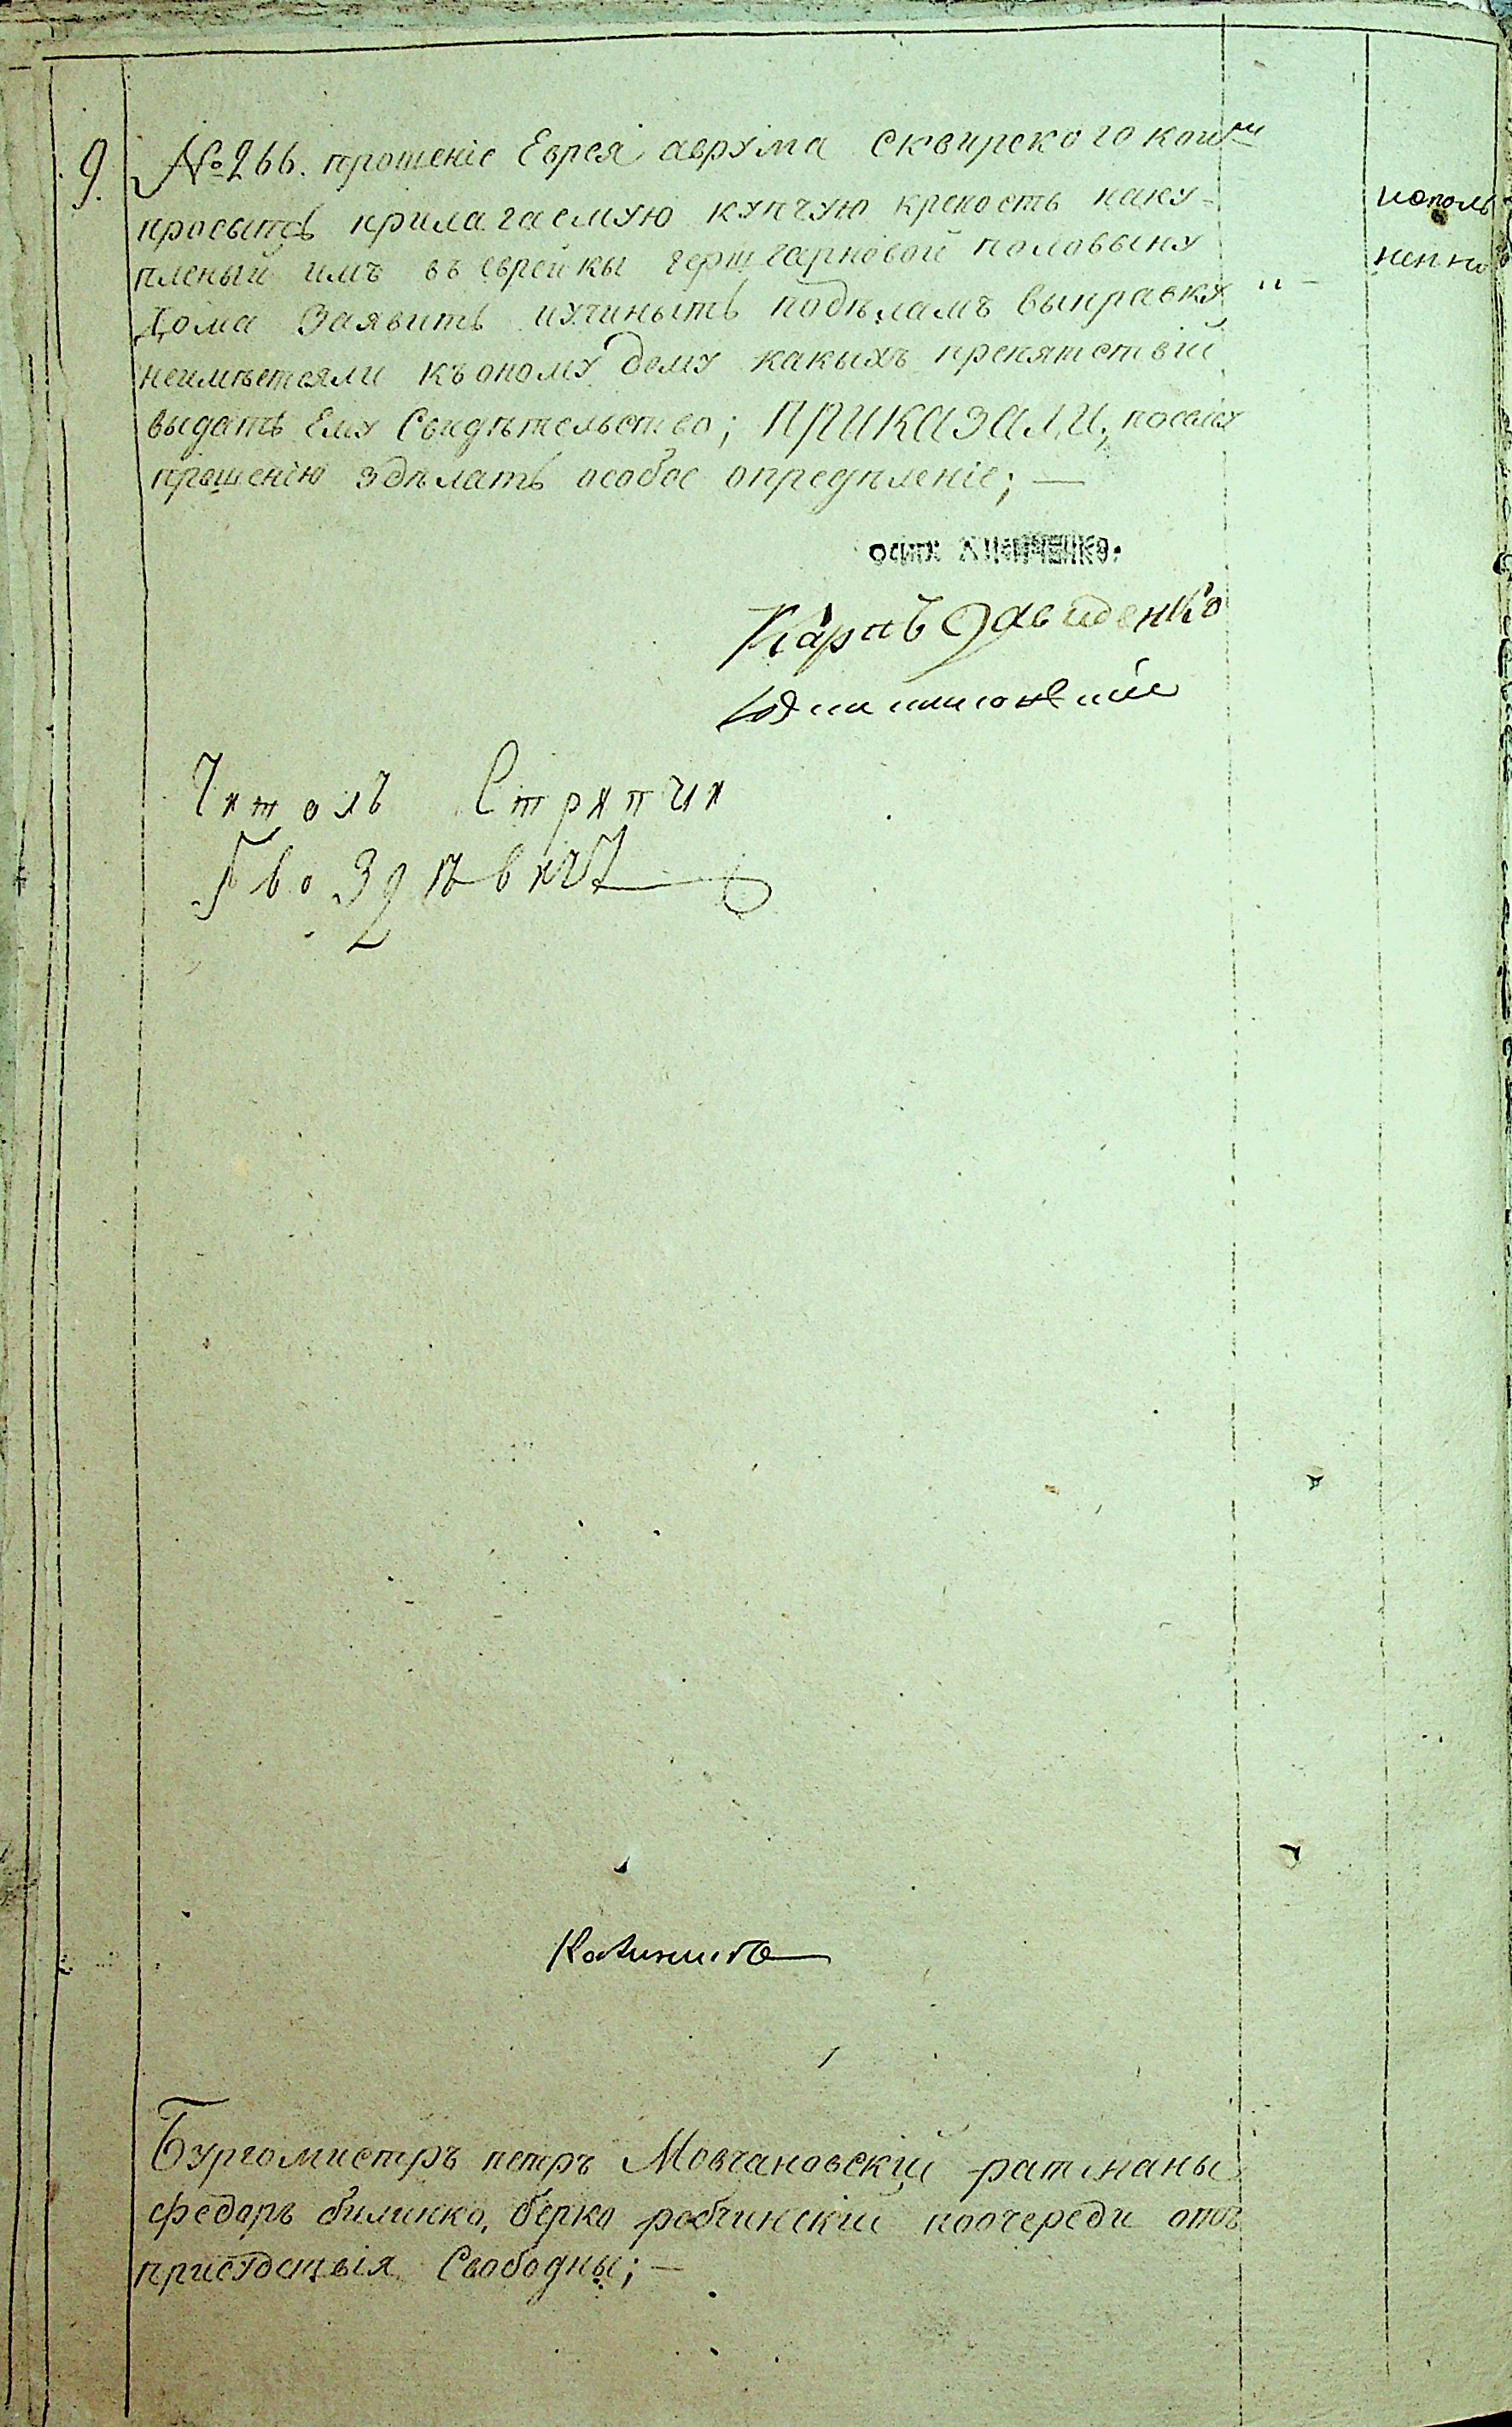 9. №266. прошеніе Еврея аврума сквирского коим
просытъ прилагаемую купчую крепость наку-
пленый имъ въ еврейкы герщгарновой половыну
Дома Заявить иучиныть подѣламъ выправку
неимѣетсяли къоному дому какыхъ препятствій
выдать Ему Свидѣтельство; ПРИКАЗАЛИ, посему
прошенію здѣлать особое опредѣленіе; —
исполь
ненно
осипъ
Карпъ Давиденко
Читалъ Стряпчи
Гвоздѣвичъ
Бургомистръ петръ Мовчановскій ратманы
федоръ билинко, берко рабчинскій поочереди отъ
присудствія Свободны; —